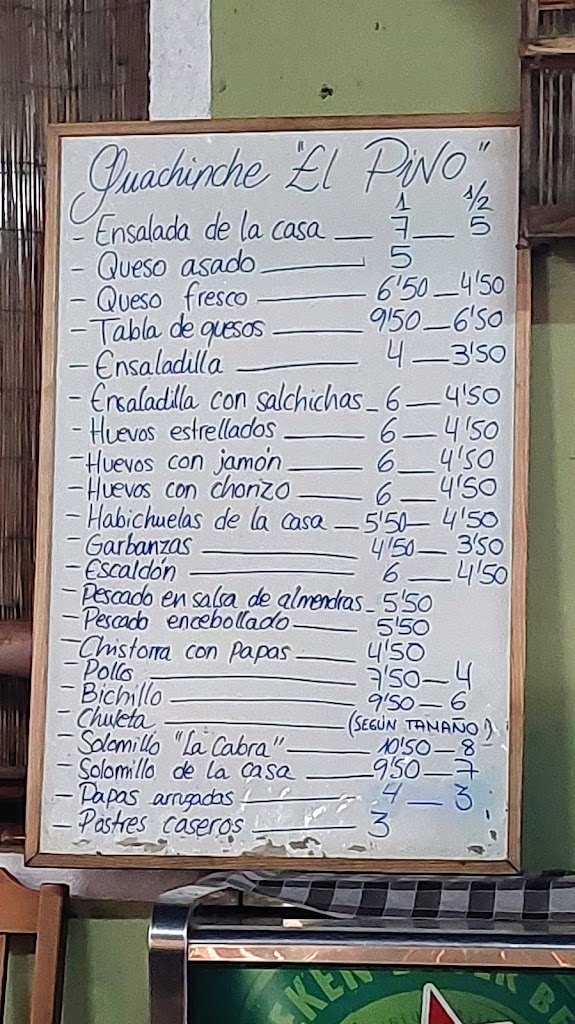 Guachinche "El PiNO"
1 1/2
- Ensalada de la casa 7 5
- Queso asado 5
- Queso fresco 6'50 4'50
- Tabla de quesos 9'50 6'50
- Ensaladilla 4 3'50
- Ensaladilla con salchichas 6 4'50
- Huevos estrellados 6 4'50
- Huevos con jamón 6 4'50
- Huevos con chorizo 6 4'50
- Habichuelas de la casa 5'50 4'50
- Garbanzas 4'50 3'50
- Escaldón 6 4'50
- Pescado en salsa de almendras 5'50
- Pescado encebollado 5'50
- Chistorra con papas 4'50
- Pollo 7'50 4
- Bichillo 9'50 6
- Chuleta (SEGÚN TAMAÑO)
- Solomillo "La Cabra" 10'50 8
- Solomillo de la casa 9'50 7
- Papas arrugadas 4 3
- Postres caseros 3